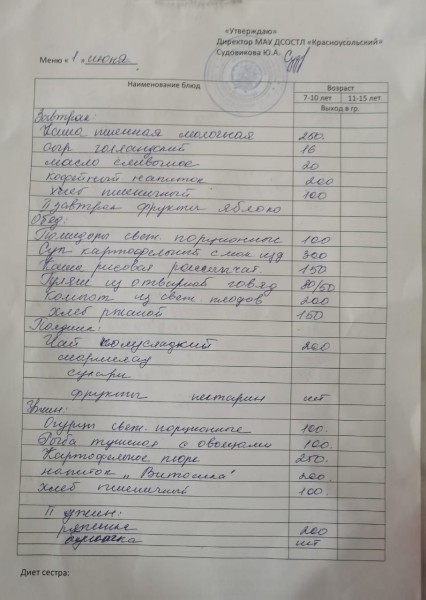 «Утверждаю»
Директор МАУ ДСОСТЛ «Красноусольский»
Судовикова Ю.А.
Меню « 1 » июня
Наименование блюд Возраст
7-10 лет 11-15 лет
Выход в гр.
Завтрак:
Каша пшенная молочная 250.
сыр голландский 16
масло сливочное 20
кофейный напиток 200
хлеб пшеничный 100
II завтрак фрукты яблоко
Обед:
Помидоры свеж. порционные 100
Суп картофельный с мак изд 300
Каша рисовая рассыпчая. 150
Гуляш из отварной говяд 80/50
Компот из свеж. плодов 200
хлеб ржаной 150
Полдник:
Чай полусладкий 200
мармелад
сухари
фрукты нектарин шт
Ужин:
Огурцы свеж. порционные 100.
Рыба тушеная с овощами 100.
Картофельное пюре 250.
напиток „Витошка" 200.
хлеб пшеничный 100.
II ужин:
ряженка 200
булочка шт
Диет сестра: